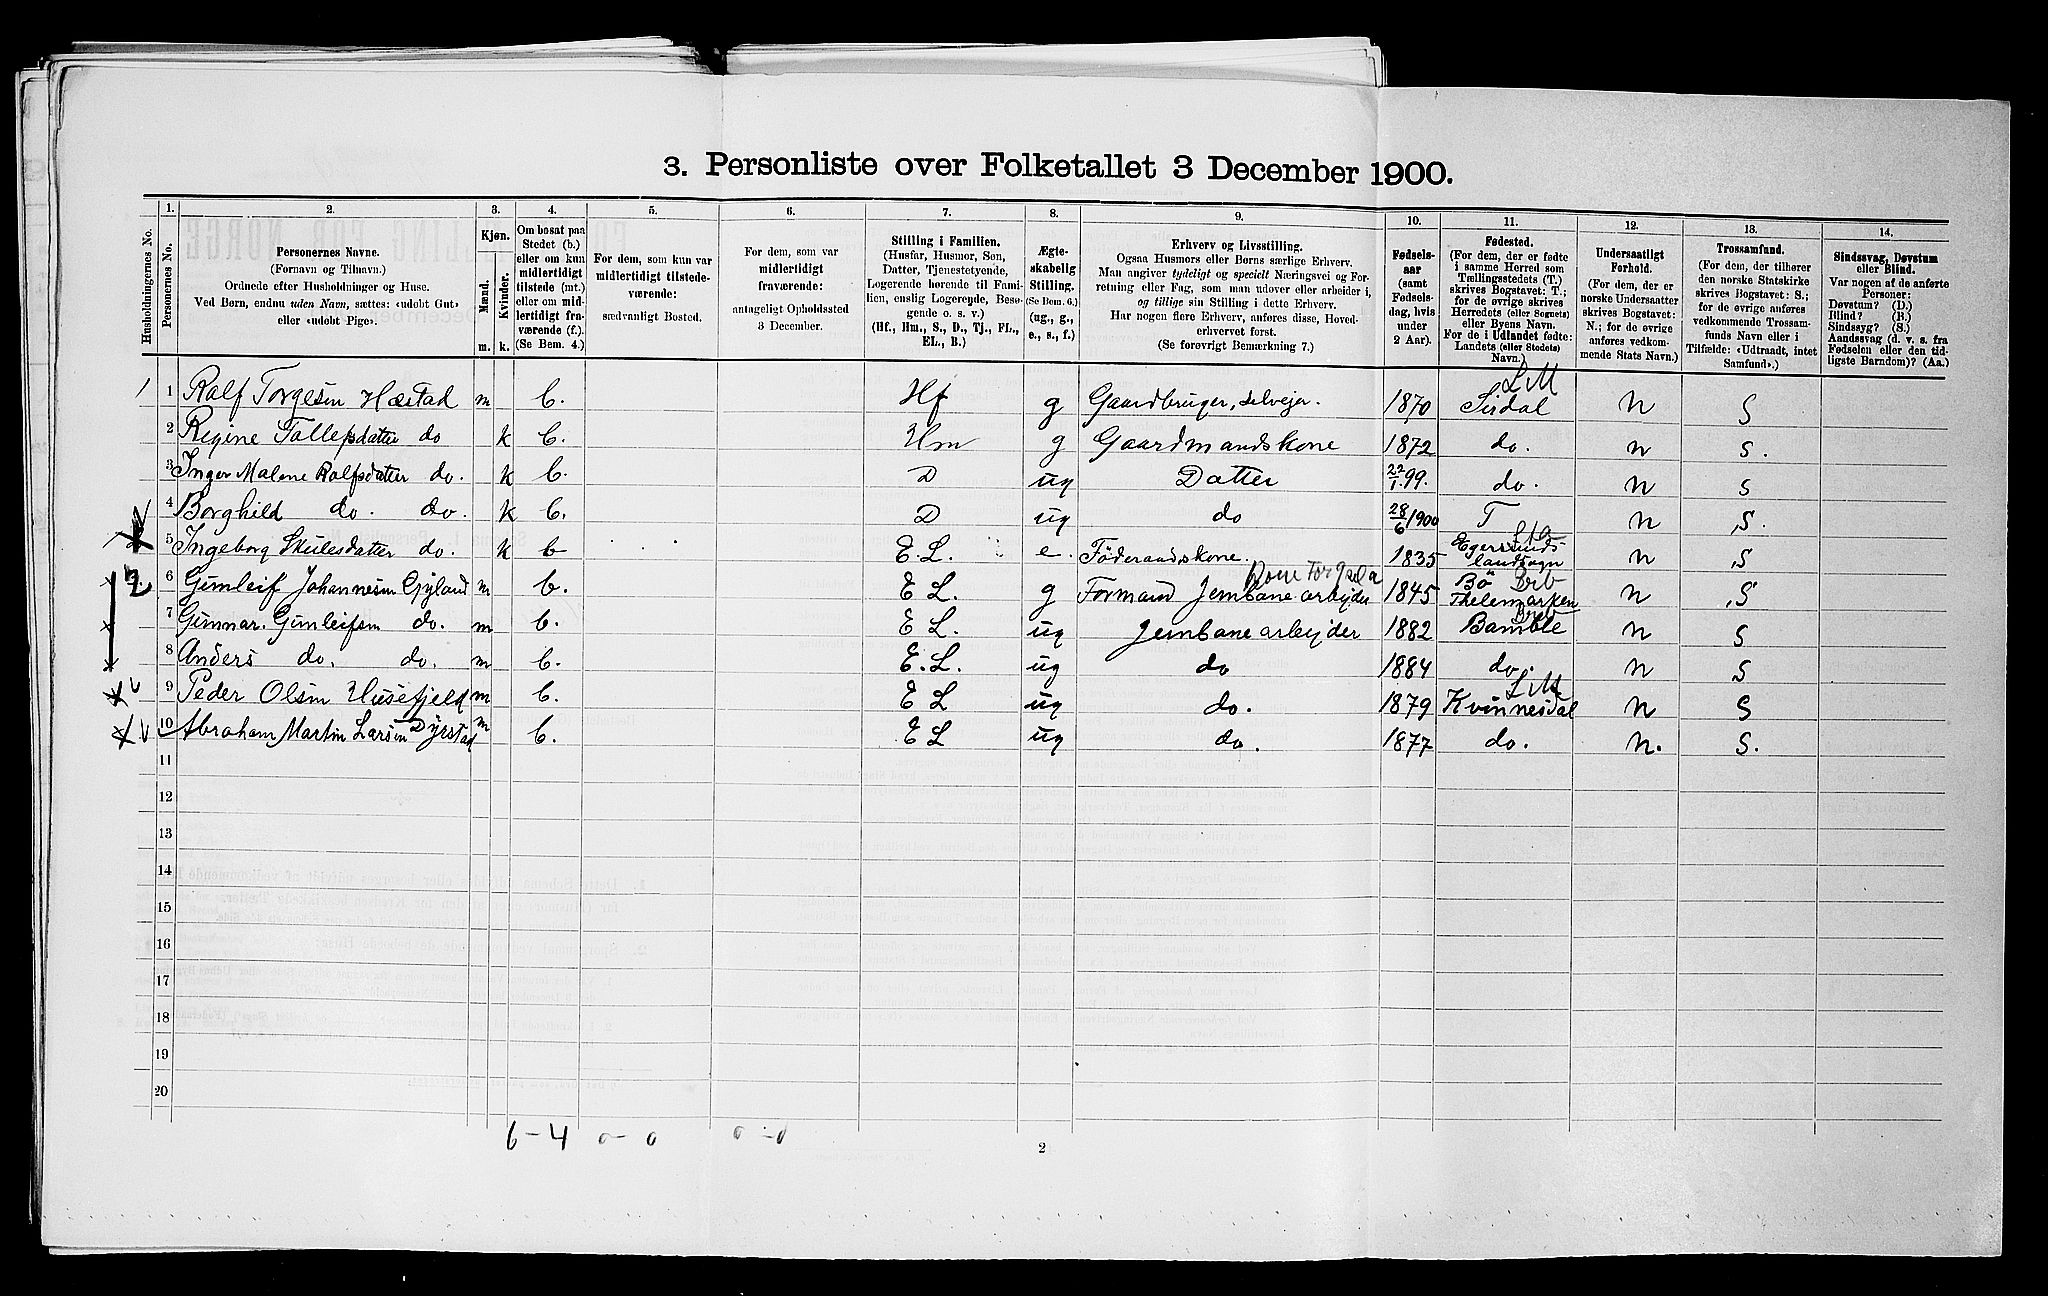 3. Personliste over Folketallet 3 December 1900.
Husholdningernes No.
1.
Personernes No.
2.
Personernes Navne.
(Fornavn og Tilnavn.)
Ordnede efter Husholdninger og Huse.
Ved Børn, endnu uden Navn, sættes: «udøbt Gut»
eller «udøbt Pige».
3.
Kjøn.
Mænd.
Kvinder.
m.
k.
4.
Om bosat paa
Stedet (b.)
eller om kun
midlertidigt
tilstede (mt.)
eller om mid-
lertidigt fra-
værende (f.).
(Se Bem. 4.)
5.
For dem, som kun var
midlertidigt tilstede-
værende:
sædvanligt Bosted.
6.
For dem, som var
midlertidigt
fraværende:
antageligt Opholdssted
3 December.
7.
Stilling i Familien.
(Husfar, Husmor, Søn,
Datter, Tjenestetyende,
Logerende hørende til Fami-
lien, enslig Logerende, Besø-
gende o. s. v.)
(Hf., Hm., S., D., Tj., FL.,
EL., B.)
8.
Ægte-
skabelig
Stilling.
(Se Bem. 6.)
(ug., g.,
e., s., f.)
9.
Erhverv og Livsstilling.
Ogsaa Husmors eller Børns særlige Erhverv.
Man angiver tydeligt og specielt Næringsvei og For-
retning eller Fag, som man udover eller arbeider i,
og tillige sin Stilling i dette Erhverv.
Har nogen flere Erhverv, anføres disse, Hoved-
erhvervet først.
(Se forøvrigt Bemærkning 7.)
10.
Fødsels-
aar
(samt
Fødsels-
dag, hvis
under
2 Aar).
11.
Fødested.
(For dem, der er fødte
i samme Herred som
Tællingsstedets (T.)
skrives Bogstavet: T.;
for de øvrige skrives
Herredets (eller Sognets)
eller Byens Navn.
For de i Udlandet fødte:
Landets (eller Stedets)
Navn.)
12.
Undersaatligt
Forhold.
(For dem, der er
norske Undersaatter
skrives Bogstavet:
N.; for de øvrige
anføres vedkom-
mende Stats Navn.)
13.
Trossamfund.
(For dem, der tilhører
den norske Statskirke
skrives Bogstavet: S.;
for de øvrige anføres
vedkommende Trossam-
funds Navn eller i
Tilfælde: «Udtraadt, intet
Samfund».)
14.
Sindssvag, Døvstum
eller Blind.
Var nogen af de anførte
Personer:
Døvstum? (D.)
Blind? (B.)
Sindssyg? (S.)
Aandssvag (d. v. s. fra
Fødselen eller den tid-
ligste Barndom)? (Aa.)
1 1 Ralf Torgesen Hæstad m b. Hf g Gaardbruger, selvejer. 1870 L M Sirdal N S
2 Regine Tallefsdatter do k b. Hm g Gaardmandskone 1872 do. N S.
3 Inger Malene Ralfsdatter do. k b. D ug Datter 22/1.99. do. N S
4 Borghild do. do. k b. D ug do 28/6 1900 T N S.
5 Ingeborg Skulesdatter do. k b E. L. e. Föderaadskone. 1835 Egersunds landsogn N S
2. 6 Gunleif Johannesen Gyland m b. E L. g Formand Jernbane arbejder 1845 Bö Thelemarken N S
7 Gunnar. Gunleifsen do. m b. E L. ug Jernbane arbejder 1882 Bamble N S
8 Anders do. do. m b. E. L. ug do 1884 do. N S
9 Peder Olsen Husefjeld m b. E L ug do. 1879 L M Kvinnesdal N S
10 Abraham Martin Larsen Dyrstad m b. E L ug do. 1877 do. N. S.
11
12
13
14
15
16
17
18
19
20
6 - 4 0 - 0 0 - 0
2